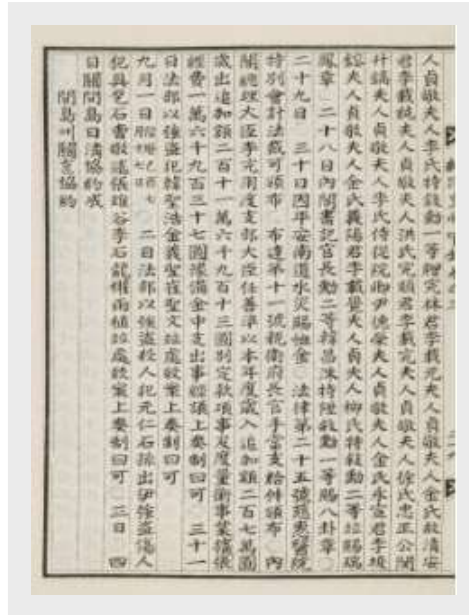 人貞敬夫人李氏特敍勳一等贈完林君李載元夫人貞敬夫人金氏故清安
君李載純夫人貞敬夫人洪氏完順君李載完夫人貞敬夫人徐氏忠正公閔
升鎬夫人貞敬夫人李氏侍從院卿尹德榮夫人貞敬夫人金氏永宣君李埈
鎔夫人貞敬夫人金氏義陽君李載覺夫人貞夫人柳氏特敍勳二等並賜瑞
鳳章 二十八日內閣書記官長勳二等韓昌洙特陞敍勳一等賜八卦章
二十九日 三十日因平安南道水災賜恤金 法律第二十五號慈惠醫院
特別會計法裁可頒布 布達第十一號親衛府長官手當支給件頒布 內
閣總理大臣李完用度支部大臣任善準以本年度歲入追加額二百七萬圓
歲出追加額二百十一萬六千九百十三圓別定款項事及度量衡事業擴張
經費一萬六千九百三十七圓豫備金中支出事經議上奏制曰可 三十一
日法部以強盜犯韓聖浩金義聖崔聖文竝處絞案上奏制曰可
九月一日 二日法部以強盜殺人犯元仁石孫出伊強盜傷人
犯具乭石曹敬議張雄谷李石龍權雨植竝處絞案上奏制曰可 三日 四
日關間島日清協約成
間島川關 協約